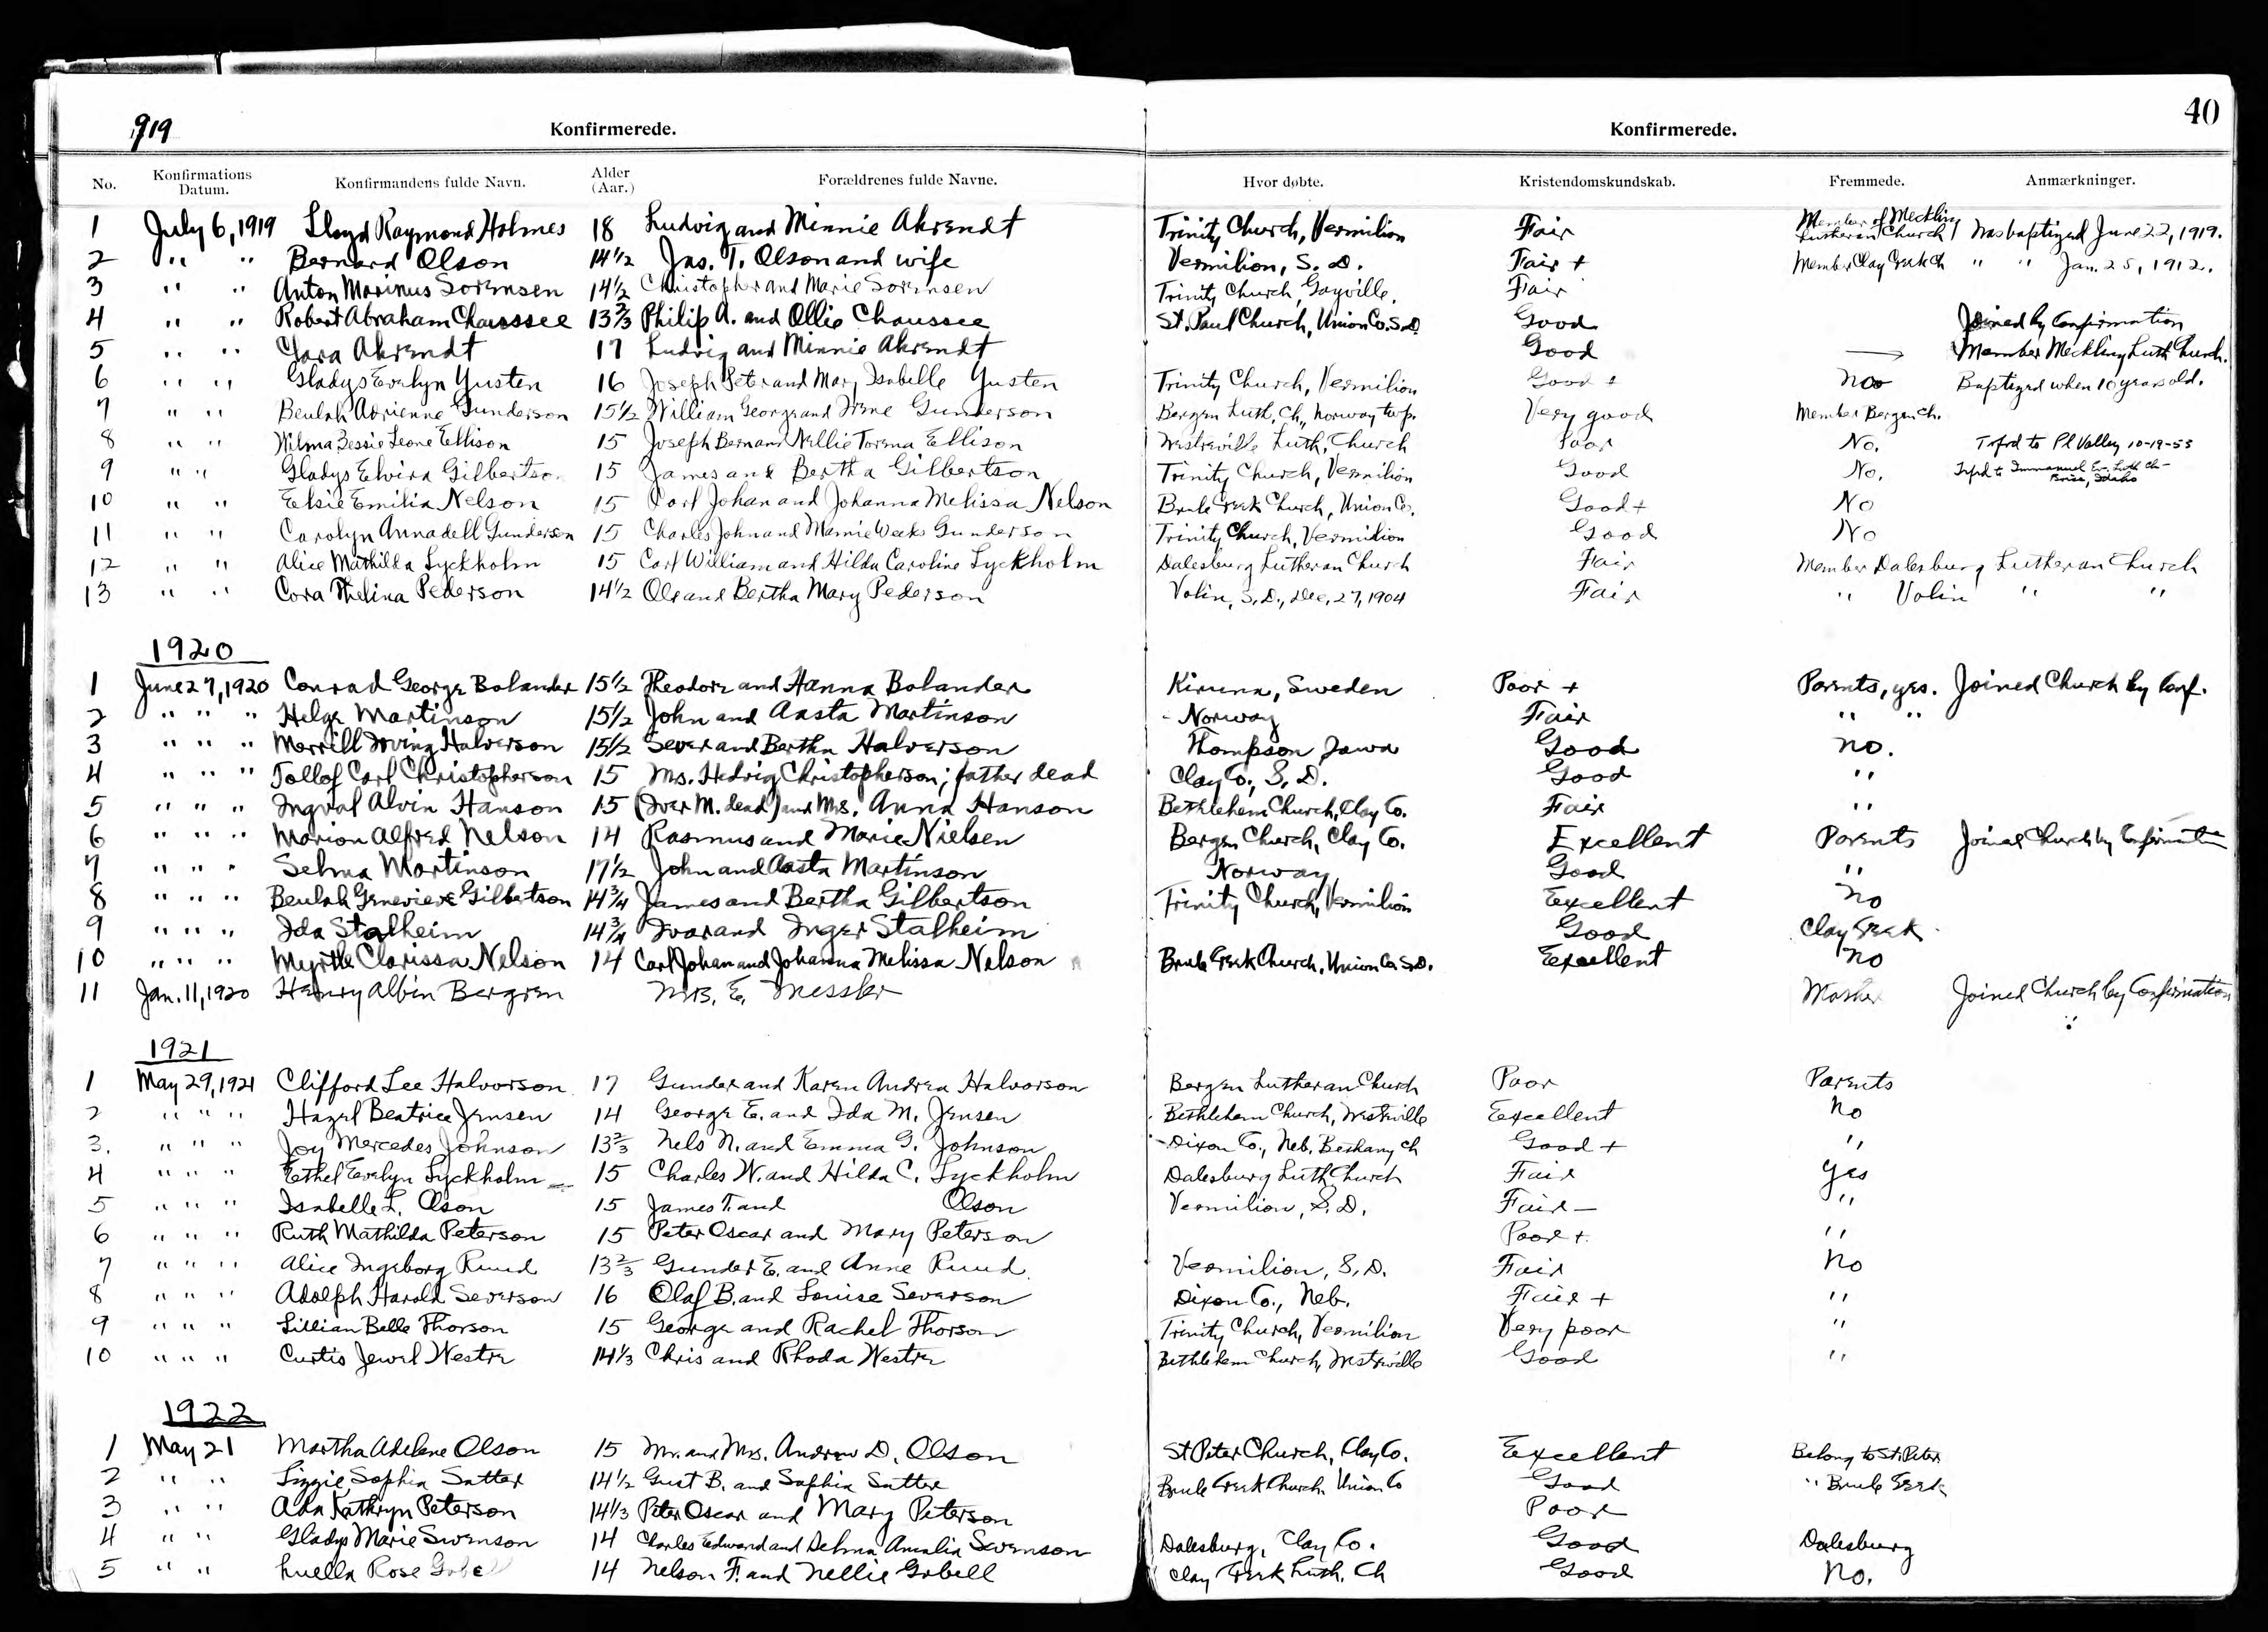 1919 Konfirmerede. Konfirmerede. 40
No. Konfirmations Datum. Konfirmandens fulde Navn. Alder (Aar.) Forældrenes fulde Navne. Hvor døbte. Kristendomskundskab. Fremmede. Anmærkninger.
1 July 6, 1919 Lloyd Raymond Holmes 18 Ludvig and Minnie Ahrendt Trinity Church, Vermilion Fair Member of Meckling Lutheran Church Was baptized June 22, 1919.
2 " " Bernard Olson 14 1/2 Jas. T. Olson and wife Vermilion, S. D. Fair + Member Clay Creek Ch " " Jan. 25, 1912.
3 " " Anton Marinus Sorensen 14 1/2 Christopher and Marie Sorensen Trinity Church, Gayville. Fair
4 " " Robert Abraham Chaussee 13 2/3 Philip A. and Ollie Chaussee St. Paul Church, Union Co. S.D. Good Joined by Confirmation
5 " " Clara Ahrendt 17 Ludvig and Minnie Ahrendt Good — Member Meckling Luth Church.
6 " " Gladys Evelyn Yusten 16 Joseph Peter and Mary Isabelle Yusten Trinity Church, Vermilion Good + No Baptized when 10 years old.
7 " " Beulah Adrienne Gunderson 15 1/2 William George and Irene Gunderson Bergen Luth. Ch., Norway twp. Very good Member Bergen Ch.
8 " " Wilma Bessie Leone Ellison 15 Joseph Bern and Nellie Torena Ellison Westreville Luth. Church Poor No. Tsfrd to Pl Valley 10-19-53
9 " " Gladys Elvira Gilbertson 15 James and Bertha Gilbertson Trinity Church, Vermilion Good No. Tsfrd to Immanuel Ev. Luth Ch - Boise, Idaho
10 " " Elsie Emilia Nelson 15 Carl Johan and Johanna Melissa Nelson Brule Creek Church, Union Co. Good + No
11 " " Carolyn Annadell Gunderson 15 Charles John and Mamie Weeks Gunderson Trinity Church, Vermilion Good No
12 " " Alice Mathilda Lyckholm 15 Carl William and Hilda Caroline Lyckholm Dalesburg Lutheran Church Fair Member Dalesburg Lutheran Church
13 " " Cora Thelina Pederson 14 1/2 Ole and Bertha Mary Pederson Volin, S. D., Dec. 27, 1904 Fair " Volin " "
1920
1 June 27, 1920 Conrad George Bolander 15 1/2 Theodore and Hanna Bolander Kiruna, Sweden Poor + Parents, yes. Joined Church by Conf.
2 " " " Helge Martinson 15 1/2 John and Aasta Martinson - Norway Fair " "
3 " " " Merrill Irving Halverson 15 1/2 Sever and Bertha Halverson Thompson, Iowa Good no.
4 " " " Tollof Carl Christopherson 15 Mrs. Hedvig Christopherson; father dead Clay Co., S. D. Good "
5 " " " Ingval Alvin Hanson 15 (Iver M. dead) and Mrs. Anna Hanson Bethlehem Church, Clay Co. Fair "
6 " " " Marion Alfred Nelson 14 Rasmus and Marie Nielsen Bergen Church, Clay Co. Excellent Parents Joined Church by Confirmation
7 " " " Selma Martinson 17 1/2 John and Aasta Martinson Norway Good "
8 " " " Beulah Genevieve Gilbertson 14 3/4 James and Bertha Gilbertson Trinity Church, Vermilion Excellent no
9 " " " Ida Stalheim 14 3/4 Ivar and Inger Stalheim Good Clay Creek
10 " " " Myrtle Clarissa Nelson 14 Carl Johan and Johanna Melissa Nelson Brule Creek Church, Union Co. S.D. Excellent no
11 Jan. 11, 1920 Henry Albin Bergren Mrs. E. Messler Mother Joined Church by Confirmation
1921
1 May 29, 1921 Clifford Lee Halvorson 17 Gunder and Karen Andrea Halvorson Bergen Lutheran Church Poor Parents
2 " " " Hazel Beatrice Jensen 14 George E. and Ida M. Jensen Bethlehem Church, Westreville Excellent No
3. " " " Joy Mercedes Johnson 13 2/3 Nels N. and Emma G. Johnson - Dixon Co., Neb. Bethany Ch Good + "
4 " " " Ethel Evelyn Lyckholm 15 Charles W. and Hilda C. Lyckholm Dalesburg Luth Church Fair Yes
5 " " " Isabelle L. Olson 15 James T. and Olson Vermilion, S. D. Fair - "
6 " " " Ruth Mathilda Peterson 15 Peter Oscar and Mary Peterson Poor + "
7 " " " Alice Ingeborg Ruud 13 2/3 Gunder E. and Anne Ruud Vermilion, S. D. Fair No
8 " " " Adolph Harold Severson 16 Olaf B. and Louise Severson Dixon Co., Neb. Fair + "
9 " " " Lillian Belle Thorson 15 George and Rachel Thorson Trinity Church, Vermilion Very poor "
10 " " " Curtis Jewel Westre 14 1/3 Chris and Rhoda Westre Bethlehem Church, Westreville Good "
1922
1 May 21 Martha Adelene Olson 15 Mr. and Mrs. Andrew D. Olson St Peter Church, Clay Co. Excellent Belong to St. Peter
2 " " Lizzie Sophia Sutter 14 1/2 Gust B. and Sophia Sutter Brule Creek Church, Union Co Good " Brule Creek
3 " " Ada Kathryn Peterson 14 1/3 Peter Oscar and Mary Peterson Poor
4 " " Gladys Marie Swenson 14 Charles Edward and Selma Amalia Swenson Dalesburg, Clay Co. Good Dalesburg
5 " " Luella Rose Gobell 14 Nelson F. and Nellie Gobell Clay Creek Luth. Ch Good No.